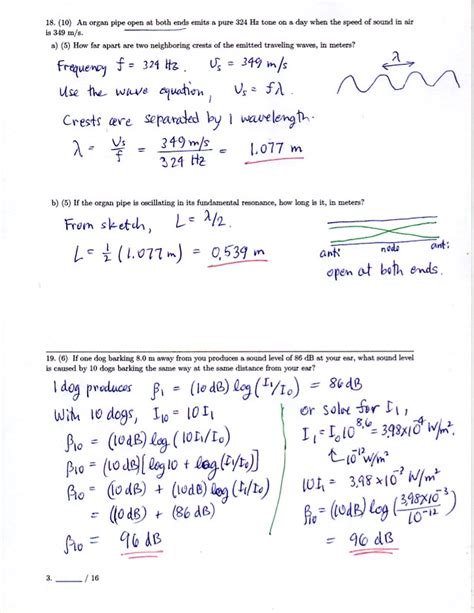 18. (10) An organ pipe open at both ends emits a pure 324 Hz tone on a day when the speed of sound in air
is 349 m/s.
a) (5) How far apart are two neighboring crests of the emitted traveling waves, in meters?
Frequency f = 324 Hz. Vs = 349 m/s
λ
Use the wave equation, Vs = fλ.
Crests are separated by 1 wavelength.
λ = Vs/f = 349 m/s / 324 Hz = 1.077 m
b) (5) If the organ pipe is oscillating in its fundamental resonance, how long is it, in meters?
From sketch, L = λ/2.
L = 1/2 (1.077 m) = 0.539 m
anti node anti
open at both ends.
19. (6) If one dog barking 8.0 m away from you produces a sound level of 86 dB at your ear, what sound level
is caused by 10 dogs barking the same way at the same distance from your ear?
1 dog produces β1 = (10 dB) log (I1/I0) = 86 dB
With 10 dogs, I10 = 10 I1
β10 = (10 dB) log (10 I1/I0)
β10 = (10 dB) [log 10 + log (I1/I0)]
β10 = (10 dB) + (10 dB) log (I1/I0)
= (10 dB) + (86 dB)
β10 = 96 dB
or solve for I1,
I1 = I0 10^8.6 = 3.98×10^-4 W/m².
10^-12 W/m².
10 I1 = 3.98×10^-3 W/m²
β10 = (10 dB) log (3.98×10^-3 / 10^-12)
= 96 dB
3. ______ / 16